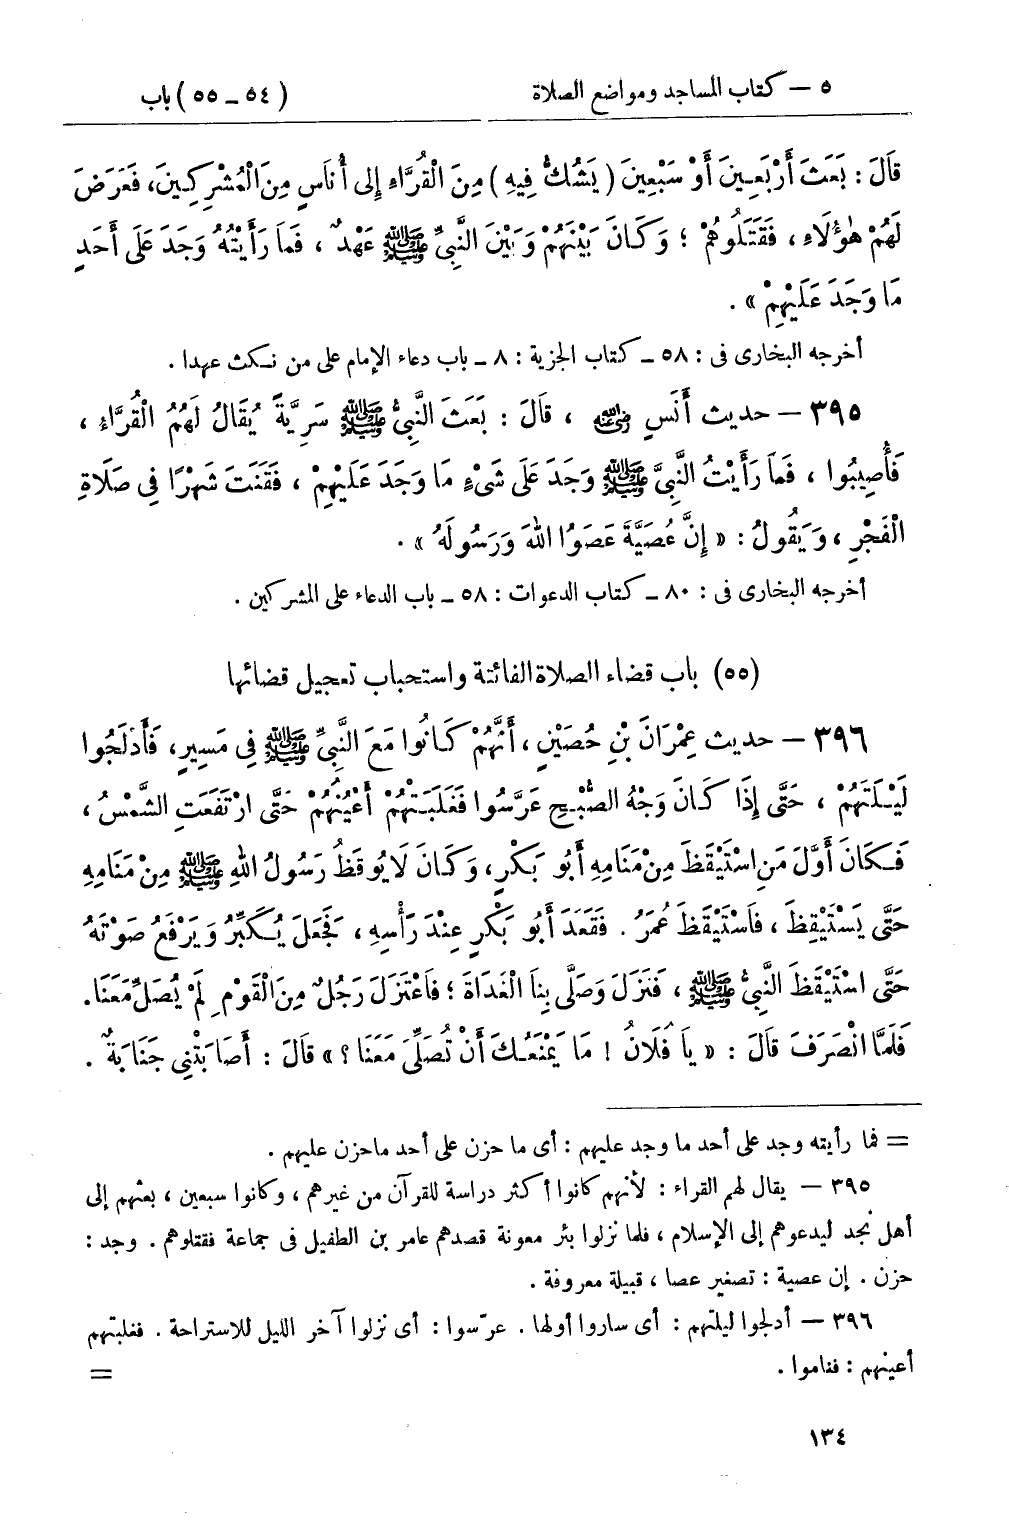 ٥ – كتاب المساجد ومواضع الصلاة (٥٤ – ٥٥) باب
قَالَ : بَعَثَ أَرْبَعِينَ أَوْ سَبْعِينَ (يَشُكُّ فِيهِ) مِنَ الْقُرَّاءِ إِلى أُنَاسٍ مِنَ الْمُشْرِكِينَ، فَعَرَضَ
لَهُمْ هٰؤُلَاءِ ، فَقَتَلُوهُمْ ؛ وَكَانَ بَيْنَهُمْ وَبَيْنَ النَّبِيِّ ﷺ عَهْدٌ ، فَمَا رَأَيْتُهُ وَجَدَ عَلَى أَحَدٍ
مَا وَجَدَ عَلَيْهِمْ » .
أخرجه البخارى فى : ٥٨ – كتاب الجزية : ٨ – باب دعاء الإمام على من نكث عهدا .
٣٩٥ – حديث أَنَسٍ رضي الله عنه ، قَالَ : بَعَثَ النَّبِيُّ ﷺ سَرِيَّةً يُقَالُ لَهُمُ الْقُرَّاءِ ،
فَأُصِيبُوا ، فَمَا رَأَيْتُ النَّبِيَّ ﷺ وَجَدَ عَلَى شَىْءٍ مَا وَجَدَ عَلَيْهِمْ ، فَقَنَتَ شَهْرًا فِى صَلَاةِ
الْفَجْرِ ، وَيَقُولُ : « إِنَّ عُصَيَّةَ عَصَوُا اللهَ وَرَسُولَهُ » .
أخرجه البخارى فى : ٨٠ – كتاب الدعوات : ٥٨ – باب الدعاء على المشركين .
(٥٥) باب قضاء الصلاة الفائتة واستحباب تعجيل قضائها
٣٩٦ – حديث عِمْرَانَ بْنِ حُصَيْنٍ ، أَنَّهُمْ كَانُوا مَعَ النَّبِيِّ ﷺ فِى مَسِيرٍ، فَأَدْلَجُوا
لَيْلَتَهُمْ ، حَتَّى إِذَا كَانَ وَجْهُ الصُّبْحِ عَرَّسُوا فَغَلَبَتْهُمْ أَعْيُنُهُمْ حَتَّى ارْتَفَعَتِ الشَّمْسُ ،
فَكَانَ أَوَّلَ مَنِ اسْتَيْقَظَ مِنْ مَنَامِهِ أَبُو بَكْرٍ، وَكَانَ لَا يُوقَظُ رَسُولُ اللهِ ﷺ مِنْ مَنَامِهِ
حَتَّى يَسْتَيْقِظَ ، فَاسْتَيْقَظَ عُمَرُ . فَقَعَدَ أَبُو بَكْرٍ عِنْدَ رَأْسِهِ ، فَجَعَلَ يُكَبِّرُ وَيَرْفَعُ صَوْتَهُ
حَتَّى اسْتَيْقَظَ النَّبِيُّ ﷺ ، فَنَزَلَ وَصَلَّى بِنَا الْغَدَاةَ ؛ فَاعْتَزَلَ رَجُلٌ مِنَ الْقَوْمِ لَمْ يُصَلِّ مَعَنَا.
فَلَمَّا انْصَرَفَ قَالَ : « يَا فُلَانُ ! مَا يَمْنَعُكَ أَنْ تُصَلِّيَ مَعَنَا ؟ » قَالَ : أَصَابَتْنِي جَنَابَةٌ .
= فما رأيته وجد على أحد ما وجد عليهم : أى ما حزن على أحد ماحزن عليهم .
٣٩٥ – يقال لهم القراء : لأنهم كانوا أكثر دراسة للقرآن من غيرهم ، وكانوا سبعين ، بعثهم إلى
أهل نجد ليدعوهم إلى الإسلام ، فلما نزلوا بئر معونة قصدهم عامر بن الطفيل فى جماعة فقتلوهم . وجد :
حزن . إن عصية : تصغير عصا ، قبيلة معروفة .
٣٩٦ – أدلجوا ليلتهم : أى ساروا أولها . عرّسوا : أى نزلوا آخر الليل للاستراحة . فغلبتهم
أعينهم : فناموا . =
١٣٤